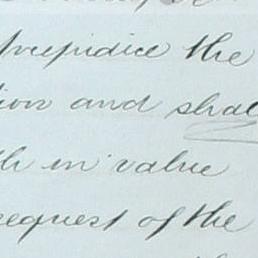 prejudice the
ion and shal
th in value
request of the